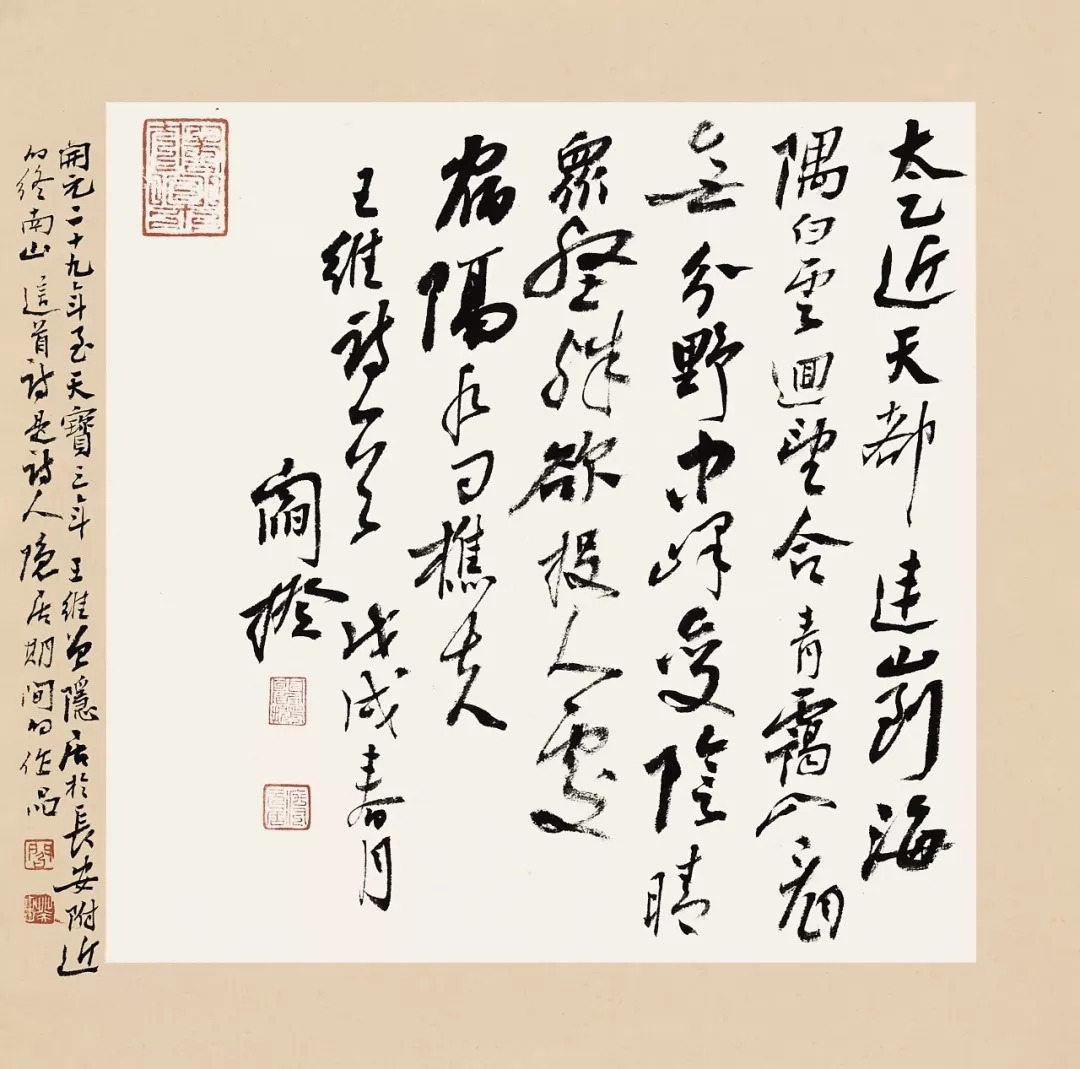 太乙近天都連山到海
隅白雲迴望合青靄入看
無分野中峰變陰晴
眾壑殊欲投人處
宿隔水問樵夫
王維詩一首 戊戌春月
閻
開元二十九年至天寶三年 王維曾隱居於長安附近
的終南山 這首詩是詩人隐居期間的作品